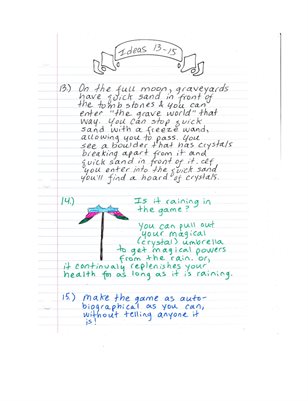 Ideas 13-15
13.) On the full moon, graveyards
have quick sand in front of
the tombstones & you can
enter "the grave world" that
way. You can stop quick
sand with a freeze wand,
allowing you to pass. You
see a boulder that has crystals
breaking apart from it and
quick sand in front of it. If
you enter into the quick sand
you'll find a hoard of crystals.
14.)
Is it raining in
the game?
You can pull out
your magical
(crystal) umbrella
to get magical powers
from the rain. Or,
it continualy replenishes your
health for as long as it is raining.
15.) Make the game as auto-
biographical as you can,
without telling anyone it
is!